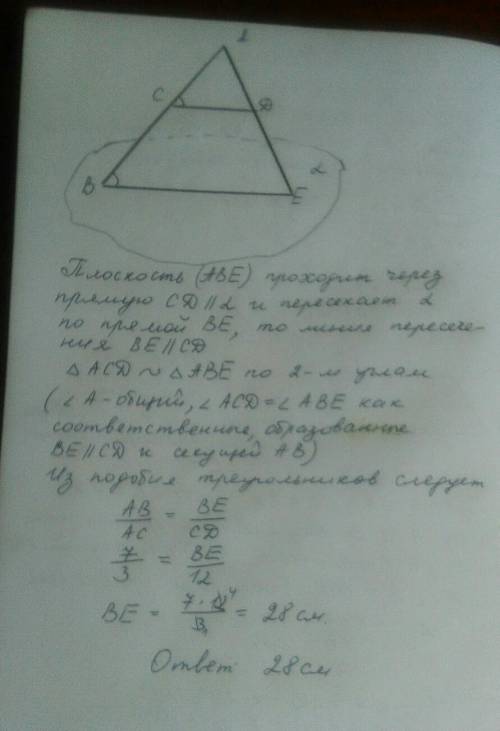 C
D
B
E
α
Плоскость (ABE) проходит через
прямую CD∥α и пересекает α
по прямой BE, то линия пересече-
ния BE∥CD
△ ACD ~ △ ABE по 2-м углам
(∠ A - общий, ∠ ACD = ∠ ABE как
соответственные, образованные
BE∥CD и секущей AB)
Из подобия треугольников следует
AB/AC = BE/CD
7/3 = BE/12
BE = 7·12/3 = 28 см.
Ответ 28 см